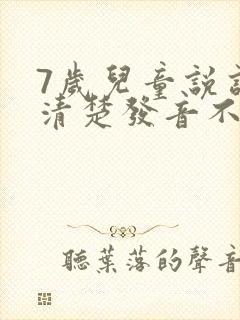 7歲兒童說
清楚發音不
聽葉落的聲音